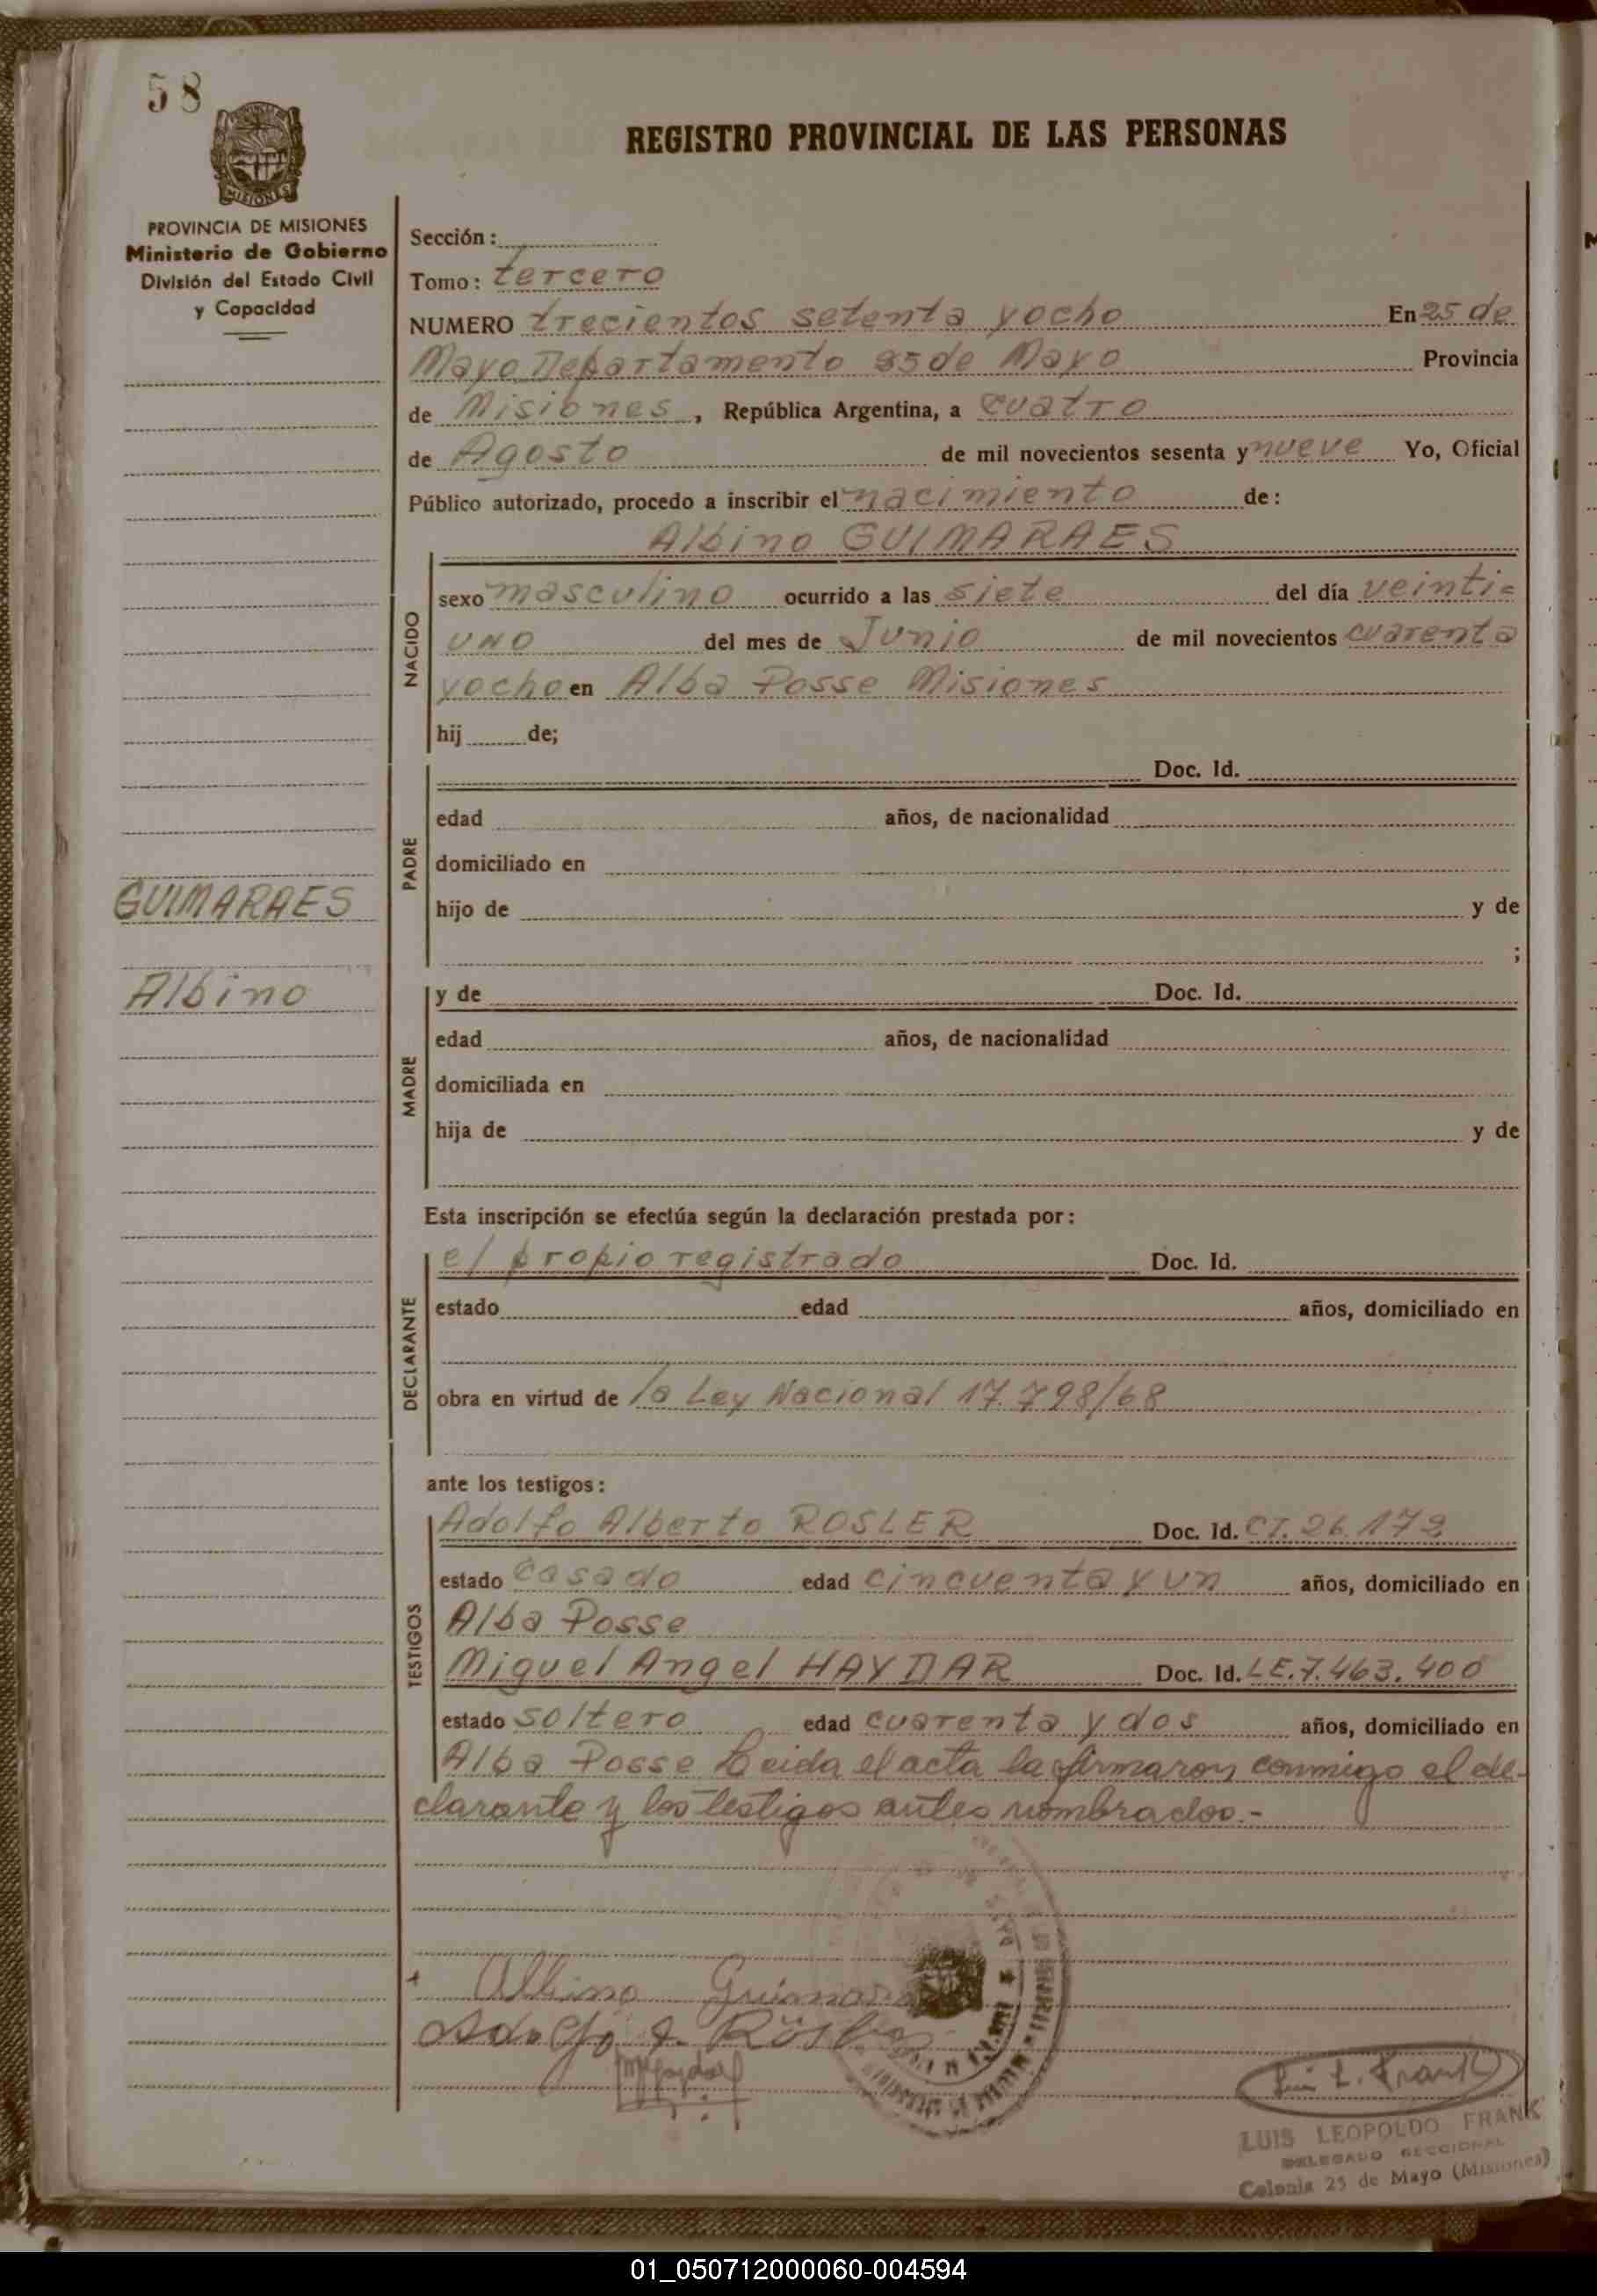 58
REGISTRO PROVINCIAL DE LAS PERSONAS
PROVINCIA DE MISIONES
Ministerio de Gobierno
División del Estado Civil
y Capacidad
Sección:
Tomo: tercero
NUMERO trecientos setenta yocho En 25 de
Mayo Departamento 25 de Mayo Provincia
de Misiones, República Argentina, a cuatro
de Agosto de mil novecientos sesenta y nueve Yo, Oficial
Público autorizado, procedo a inscribir el nacimiento de:
Albino GUIMARAES
NACIDO
sexo masculino ocurrido a las siete del día veinti=
uno del mes de Junio de mil novecientos cuarenta
yocho en Alba Posse Misiones
hij de;
PADRE
Doc. Id.
edad años, de nacionalidad
domiciliado en
hijo de y de
;
GUIMARAES
Albino
MADRE
y de Doc. Id.
edad años, de nacionalidad
domiciliada en
hija de y de
Esta inscripción se efectúa según la declaración prestada por:
DECLARANTE
el propio registrado Doc. Id.
estado edad años, domiciliado en
obra en virtud de la Ley Nacional 17.798/68
ante los testigos:
TESTIGOS
Adolfo Alberto ROSLER Doc. Id. CI. 26.172
estado casado edad cincuenta y un años, domiciliado en
Alba Posse
Miguel Angel HAYDAR Doc. Id. LE.7.463.400
estado soltero edad cuarenta y dos años, domiciliado en
Alba Posse Leida el acta la firmaron conmigo el de-
clarante y los testigos antes nombrados.-
Albino Guimaraes
Adolfo A. Rösler
Luis L. Frank
LUIS LEOPOLDO FRANK
DELEGADO SECCIONAL
Colonia 25 de Mayo (Misiones)
01_050712000060-004594